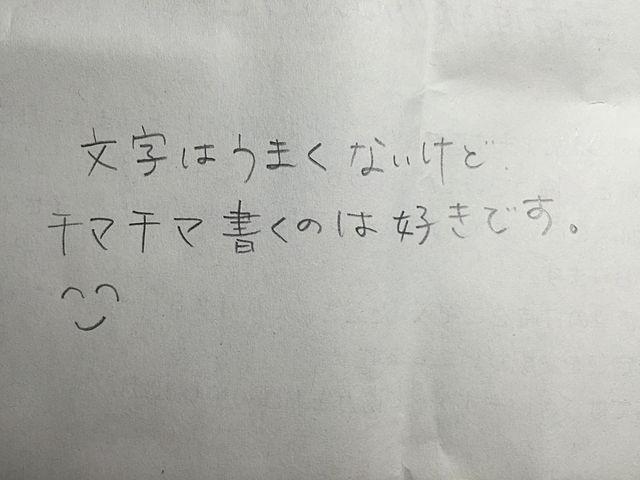 文字はうまくないけど
チマチマ書くのは好きです。